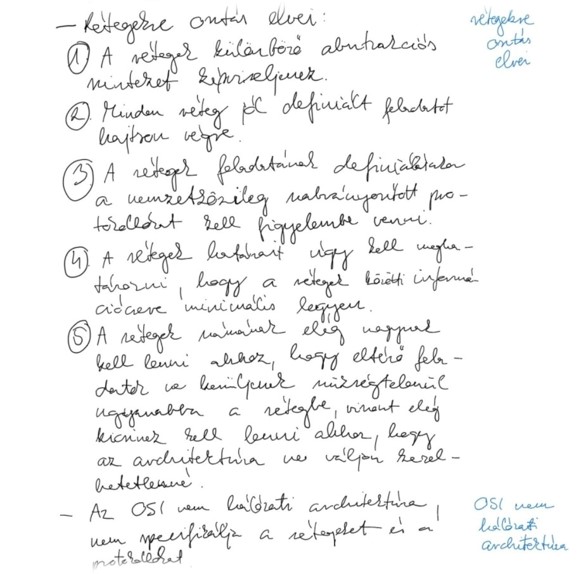 – Rétegekre osztás elvei:
rétegekre
osztás
elvei
① A rétegek különböző absztrakciós
szintezet képviseljenek.
② Minden réteg jól definiált feladatot
hajtson végre.
③ A rétegek feladatának definiálásakor
a nemzetközileg szabványosított pro-
tokollokat kell figyelembe venni.
④ A rétegek határait úgy kell megha-
tározni, hogy a rétegek közötti informá
ciócsere minimális legyen.
⑤ A rétegek számának elég nagynak
kell lenni ahhoz, hogy eltérő fela-
datok ne kerüljenek szükségtelenül
ugyanabba a rétegbe, viszont elég
kicsinek kell lenni ahhoz, hogy
az architektúra ne váljon kezel-
hetetlenné.
– Az OSI nem hálózati architektúra,
nem specifikálja a rétegeket és a
protokollokat
OSI nem
hálózati
architektúra